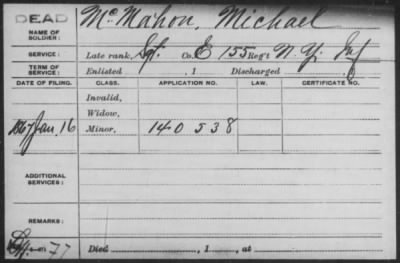 DEAD
NAME OF SOLDIER: McMahon, Michael
SERVICE: Late rank, Sgt. Co. E 155 Reg't N.Y. Inf
TERM OF SERVICE: Enlisted , 1 Discharged
DATE OF FILING. CLASS. APPLICATION NO. LAW. CERTIFICATE NO.
Invalid,
Widow,
1867 Jan. 16 Minor, 140538
ADDITIONAL SERVICES:
REMARKS:
77 Died , 1 , at